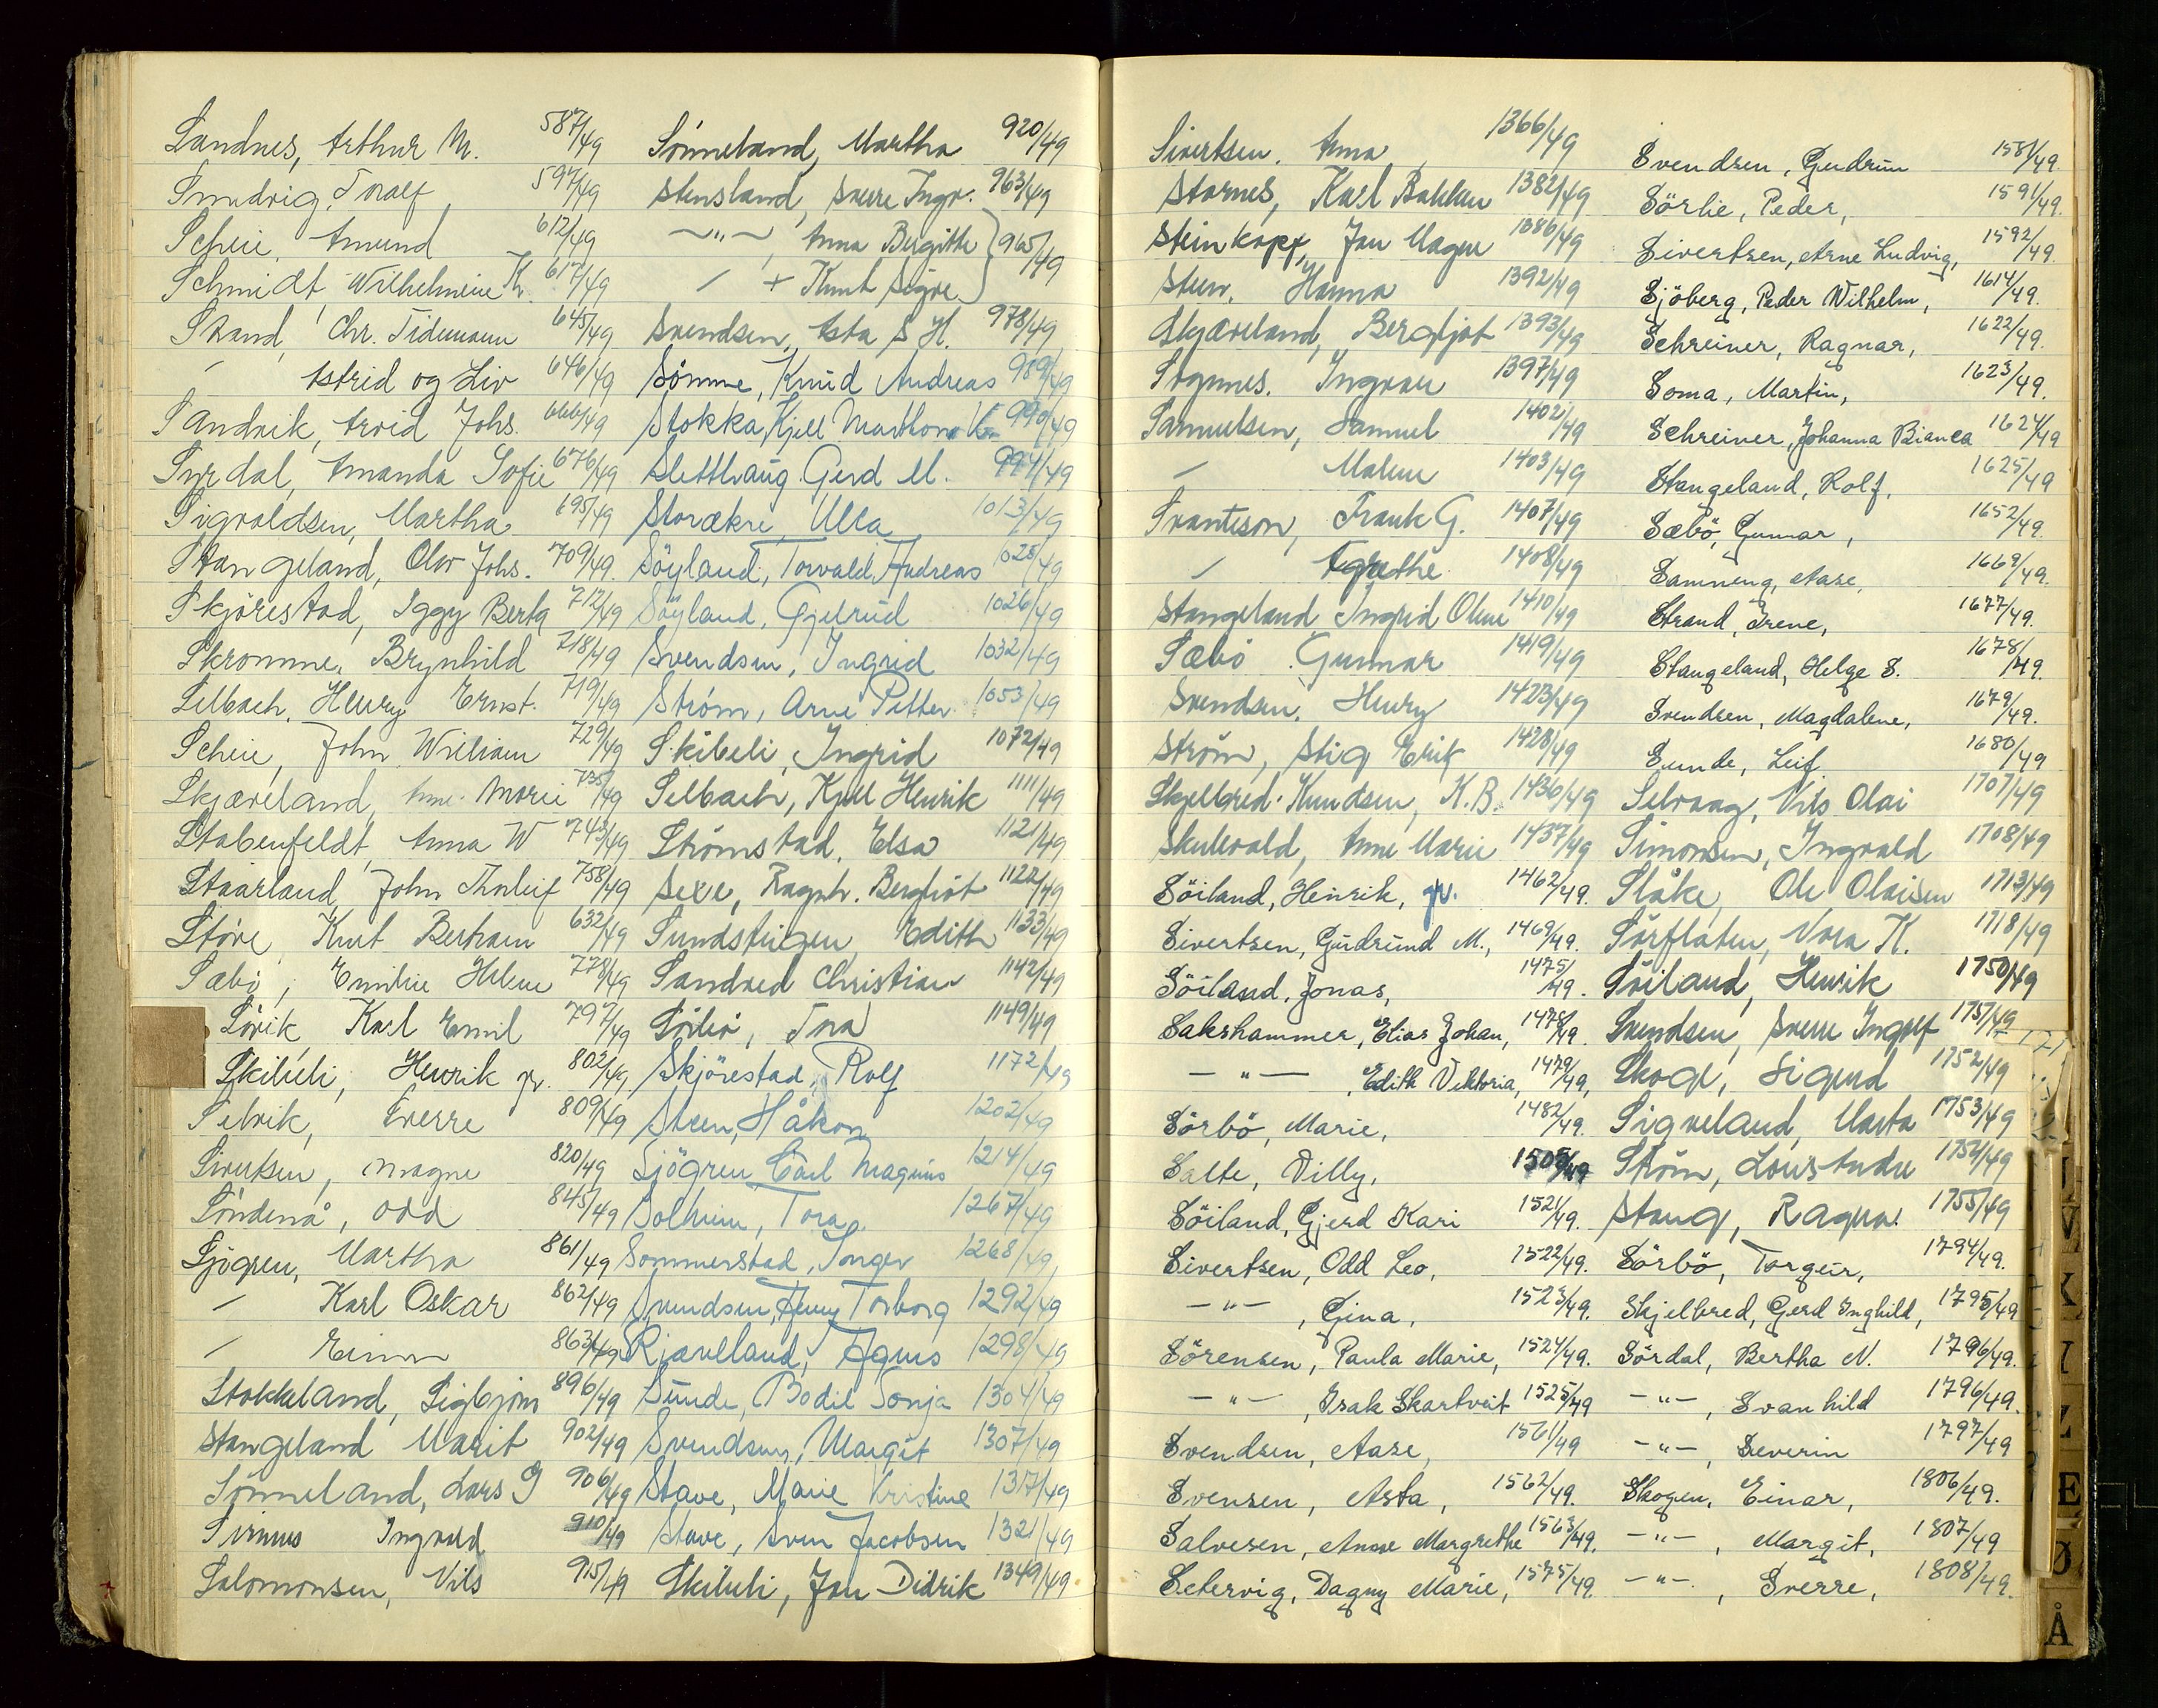 Sandnes, Arthur M. 587/49
Smedvig, Toralf 597/49
Scheie, Amund 612/49
Schmidt Wilhelmine K. 617/49
Strand, Chr. Tidemann 645/49
" Astrid og Liv 646/49
Sandvik, Arvid Johs. 666/49
Surdal, Amanda Sofie 676/49
Sigvaldsen, Martha 695/49
Stangeland, Olav Johs. 709/49.
Skjörestad, Iggy Berta 712/49
Skromme, Brynhild 718/49
Selbach, Henry Ernst. 719/49
Scheie, John William 729/49
Skjæveland, Anne-Marie 735/49
Stabenfeldt, Anna W 743/49
Staarland, John Thorleif 758/49
Störe, Knut Bertram 632/49
Sæbö, Emilie Helene 778/49
Sörik, Karl Emil 797/49
Skibeli, Henrik gr. 802/49
Selvik, Sverre 809/49
Sivertsen, Magne 820/49
Söndenå, Odd 845/49
Sjögren, Martha 861/49
" Karl Oskar 862/49
" Einar 863/49
Stokkeland, Sigbjørn 896/49
Stangeland Marit 902/49
Sönneland, Lars G 906/49
Sirnes Ingvald 910/49
Salomonsen, Nils 915/49
Sönneland, Martha 920/49
Stensland, Sverre Ingv. 963/49
—"—, Anna Birgitte } 965/49
" + Knut Sigve
Svendsen, Asta S H. 978/49
Sömme, Knud Andreas 989/49
Stokka, Kjell Marthon 990/49
Sletthaug Gerd M. 994/49
Storækre, Ulla 1013/49
Söyland, Torvald Andreas 1025/49
Söyland, Gjetrud 1026/49
Svendsen, Ingrid 1032/49
Strøm, Arne Petter 1053/49
Skibeli, Ingrid 1072/49
Selbach, Kjell Henrik 1111/49
Strømstad, Elsa 1121/49
Sexe, Ragnh. Bergliot 1122/49
Sundsteigen, Edith 1133/49
Sandved Christian 1142/49
Sörbö, Tora 1149/49
Skjörestad, Rolf 1172/49
Steen, Håkon 1202/49
Sjögren, Carl Magnus 1214/49
Solheim, Tora 1267/49
Sommerstad, Inger 1268/49
Svendsen, Jenny Torborg 1292/49
Skjævelland, Agnes 1298/49
Sunde, Bodil Sonja 1304/49
Svendsen, Margit 1307/49
Stave, Marie Kristine 1317/49
Stave, Sven Jacobsen 1321/49
Skibeli, Jan Didrik 1349/49
Sivertsen, Anna 1366/49
Starnes, Karl Bakken 1382/49
Steinkopf, Jan Magne 1386/49
Steen, Hanna 1392/49
Skjæveland, Bergljot 1393/49
Sognnes, Ingvar 1397/49
Samuelsen, Samuel 1402/49
" Malene 1403/49
Svanteson, Frank G. 1407/49
" Agnethe 1408/49
Stangeland Ingrid Oline 1410/49
Sæbö Gunnar 1419/49
Svendsen, Henry 1423/49
Ström, Stig Erik 1428/49
Skjelbred-Knudsen, K.B. 1436/49
Skulevold, Anne Marie 1437/49
Söiland, Henrik, gr. 1462/49.
Sivertsen, Gudrund M., 1469/49.
Söiland, Jonas, 1475/49.
Sakshammer, Elias Johan, 1478/49.
—"—, Edith Viktoria, 1479/49,
Sörbö, Marie, 1482/49.
Salte, Villy, 1505/49
Söiland, Gjerd Kari 1521/49.
Sivertsen, Odd Leo, 1522/49.
—"—, Gina, 1523/49.
Sörensen, Paula Marie, 1524/49.
—"—, Isak Skartveit 1525/49
Svendsen, Aase, 1561/49
Svensen, Asta, 1562/49.
Salvesen, Anne Margrethe 1563/49.
Setervig, Dagny Marie, 1575/49.
Svendsen, Gudrun 1581/49.
Sörlie, Peder, 1591/49.
Sivertsen, Arne Ludvig, 1592/49.
Sjöberg, Peder Wilhelm, 1614/49.
Schreiner, Ragnar, 1622/49.
Soma, Martin, 1623/49.
Schreiner, Johanna Bianca 1624/49
Stangeland, Rolf, 1625/49
Sæbö, Gunnar, 1652/49.
Samneng, Aase, 1669/49.
Strand, Irene, 1677/49.
Stangeland, Helge S. 1678/49.
Svendsen, Magdalene, 1679/49.
Sunde, Leif 1680/49
Selvaag, Nils Olai 1707/49
Simonsen, Ingvald 1708/49
Slåke, Ole Olaisen 1713/49
Sörflaten, Nora K. 1718/49
Söiland, Henrik 1750/49
Svendsen, Sverre Ingolf 1751/49
Skoge, Sigurd 1752/49
Sigveland, Marta 1753/49
Ström, Louis Andre 1754/49
Stang, Ragna 1755/49
Sörbö, Torgeir, 1794/49.
Skjelbred, Gerd Inghild, 1795/49
Sördal, Bertha N. 1796/49.
—"—, Svanhild 1796/49.
—"—, Severin 1797/49
Skogen, Einar, 1806/49.
—"—, Margit, 1807/49
—"—, Sverre, 1808/49.
V
K
Y
Z
E
Ø
Å